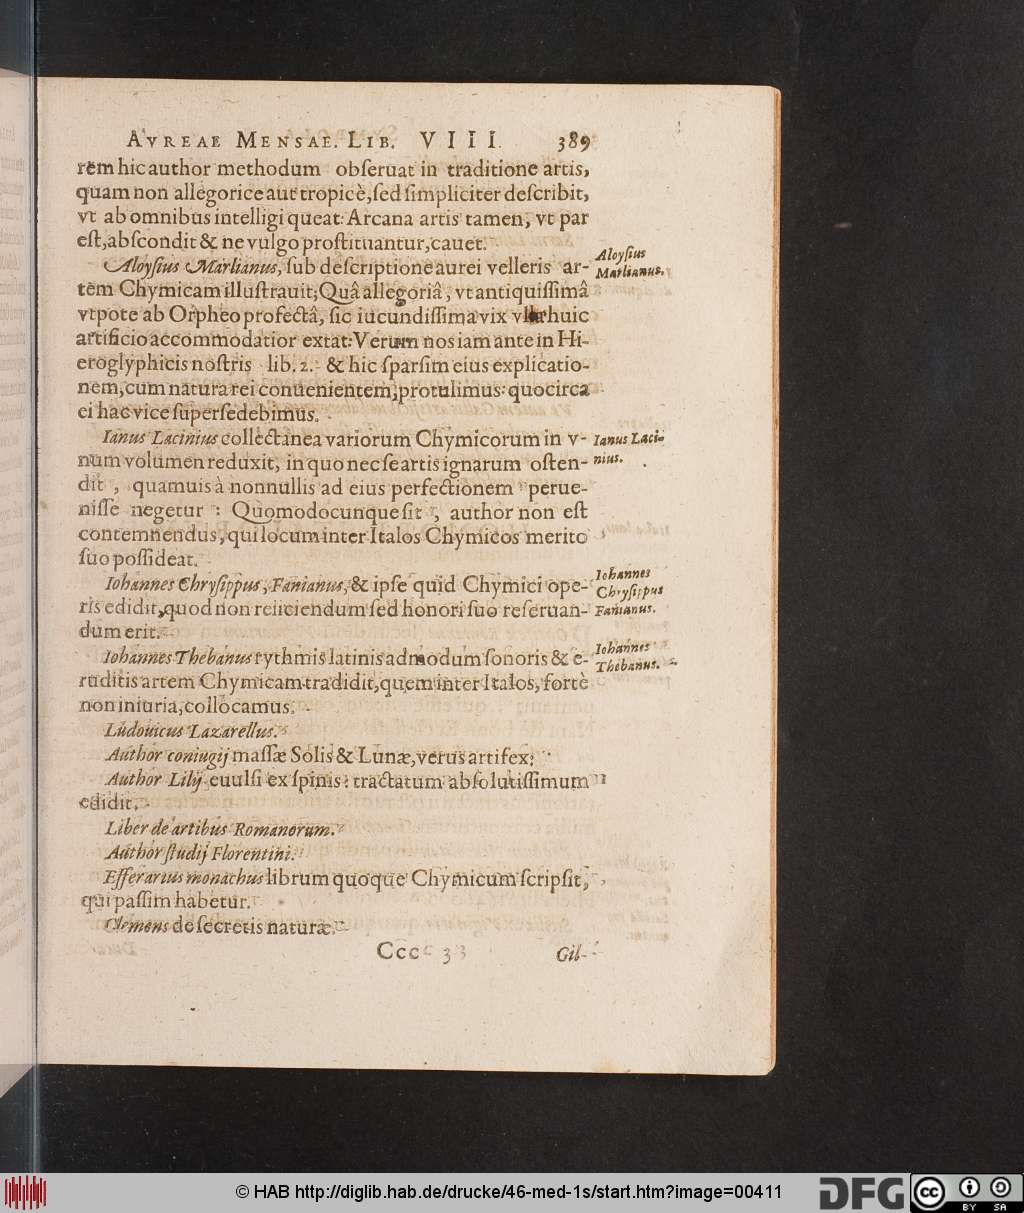 AVREAE MENSAE. LIB. VIII. 389
rem hic author methodum obſeruat in traditione artis,
quam non allegorice aut tropicè, ſed ſimpliciter deſcribit,
vt ab omnibus intelligi queat: Arcana artis tamen, vt par
eſt, abſcondit & ne vulgo proſtituantur, cauet.
Aloyſius Marlianus, ſub deſcriptione aurei velleris ar-
tem Chymicam illuſtrauit; Quâ allegoriâ, vt antiquiſſimâ
vtpote ab Orpheo profectâ, ſic iucundiſſima vix vlla huic
artificio accommodatior extat: Verum nos iam ante in Hi-
eroglyphicis noſtris lib. 2. & hic ſparſim eius explicatio-
nem, cum natura rei conuenientem, protulimus: quocirca
ei hac vice ſuperſedebimus.
Aloyſius
Marlianus.
Ianus Lacinius collectanea variorum Chymicorum in v-
num volumen reduxit, in quo nec ſe artis ignarum oſten-
dit, quamuis à nonnullis ad eius perfectionem perue-
niſſe negetur: Quomodocunque ſit, author non eſt
contemnendus, qui locum inter Italos Chymicos merito
ſuo poſſideat.
Ianus Laci-
nius.
Iohannes Chryſippus, Fanianus, & ipſe quid Chymici ope-
ris edidit, quod non reiiciendum ſed honori ſuo reſeruan-
dum erit.
Iohannes
Chryſippus
Fanianus.
Iohannes Thebanus rythmis latinis admodum ſonoris & e-
ruditis artem Chymicam tradidit, quem inter Italos, fortè
non iniuria, collocamus.
Iohannes
Thebanus.
Ludouicus Lazarellus.
Author coniugij maſſæ Solis & Lunæ, verus artifex.
Author Lilij euulſi ex ſpinis: tractatum abſolutiſſimum
edidit.
Liber de artibus Romanorum.
Author ſtudij Florentini.
Efferarius monachus librum quoque Chymicum ſcripſit,
qui paſſim habetur.
Clemens de ſecretis naturæ.
Cccc 3 Gil-
© HAB http://diglib.hab.de/drucke/46-med-1s/start.htm?image=00411
DFG
cc BY SA